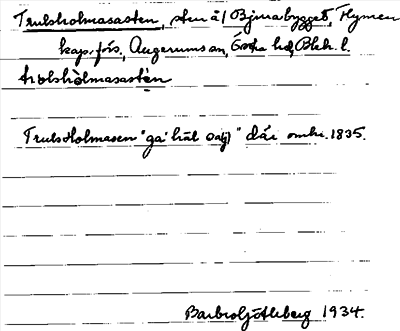 Trulsholmasasten, sten å Bjurabygget, Flymen
kap. förs, Augerums sn, Östra hd, Blek. l.
trolshòlmasastèn
Truls Holmasen "ga hål såj" där omkr. 1835.
Barbro Götleberg 1934.